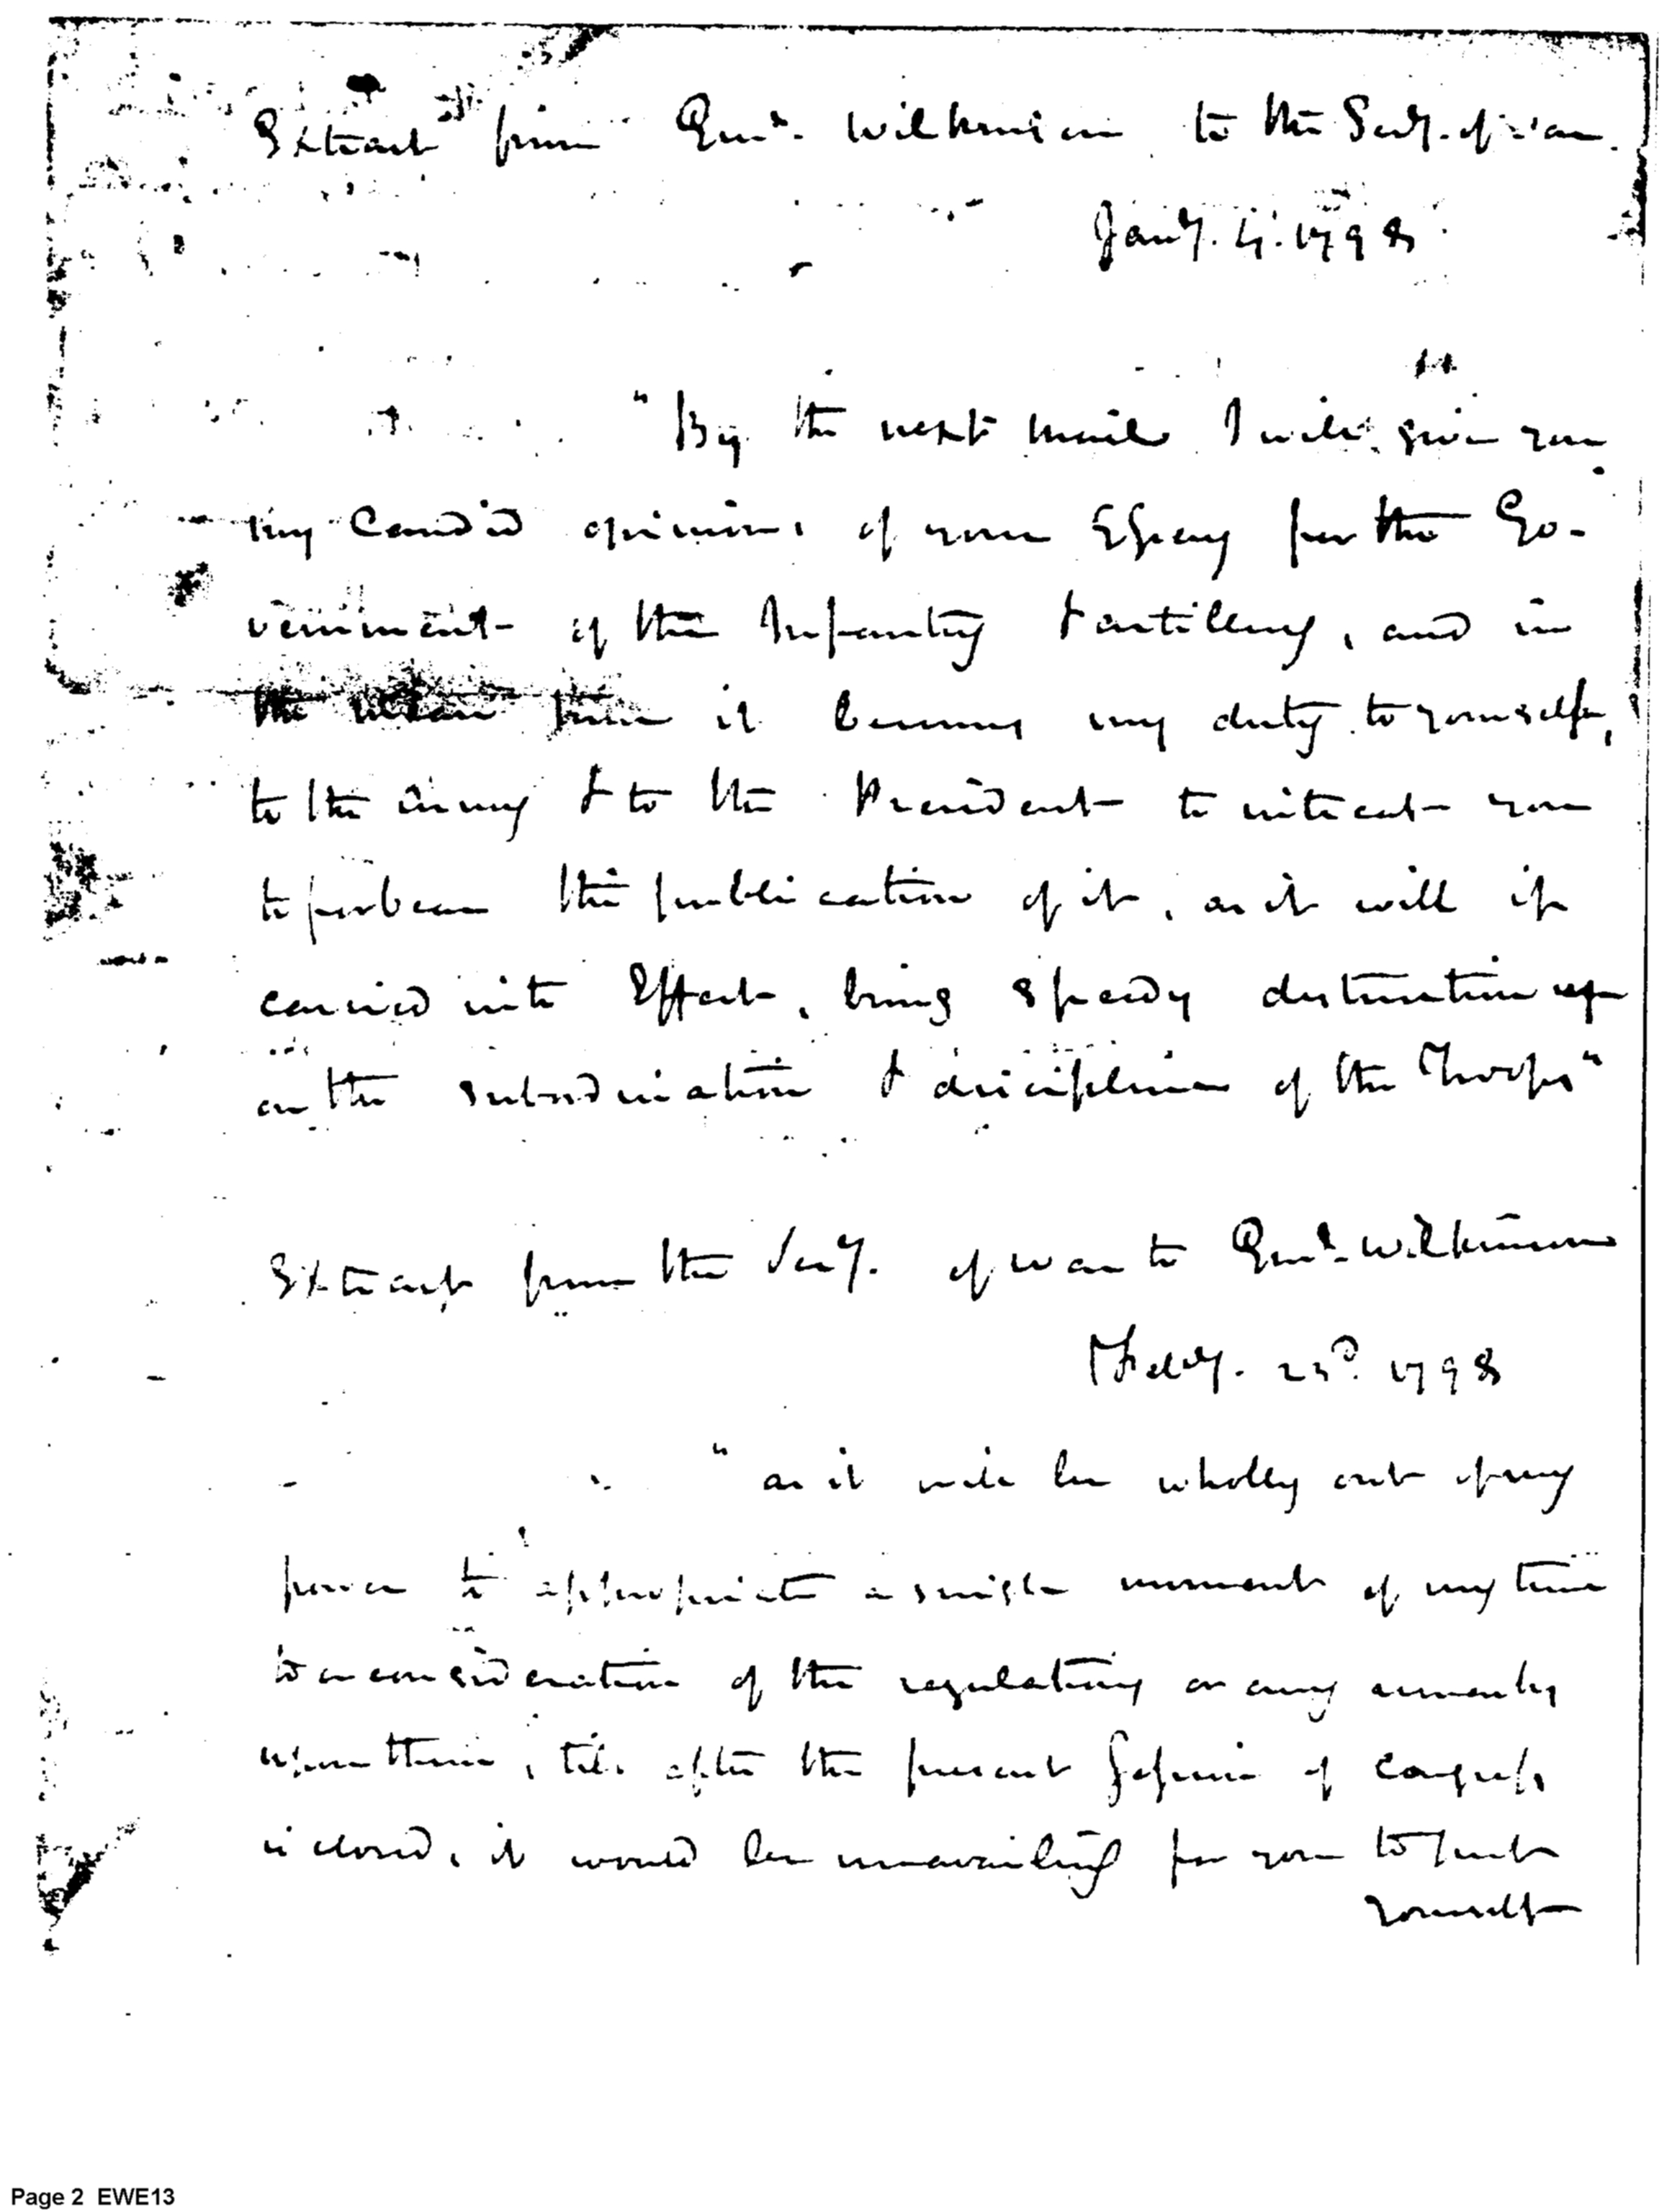 Extract from Genl. Wilkinson to the Secy. of war.
Jany. 4. 1798
"By the next mail I will give you
my Candid opinions of your Essay for the Go-
vernment of the Infantry & artillery, and in
the mean time it becomes my duty to yourself,
to the army & to the President to intreat you
to forbear the publication of it, as it will if
carried into Effect, bring speedy destruction up
on the subordination & discipline of the Troops"
Extract from the Secy. of war to Genl. Wilkinson
Feby. 23d. 1798
"as it will be wholly out of my
power to appropriate a single moment of my time
to a consideration of the regulations or any remarks
upon them, till after the present Session of Congress
is closed, it would be unavailing for you to
yourself
Page 2 EWE13